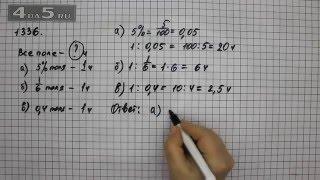 4DA5.RU
1336.
Все поле – ? ч
а) 5% поля – 1ч
б) 1/6 поля – 1ч
в) 0,4 поля – 1ч
а) 5% = 5/100 = 0,05
1 : 0,05 = 100 : 5 = 20ч
б) 1 : 1/6 = 1 · 6 = 6ч
в) 1 : 0,4 = 10 : 4 = 2,5ч
Ответ: а)